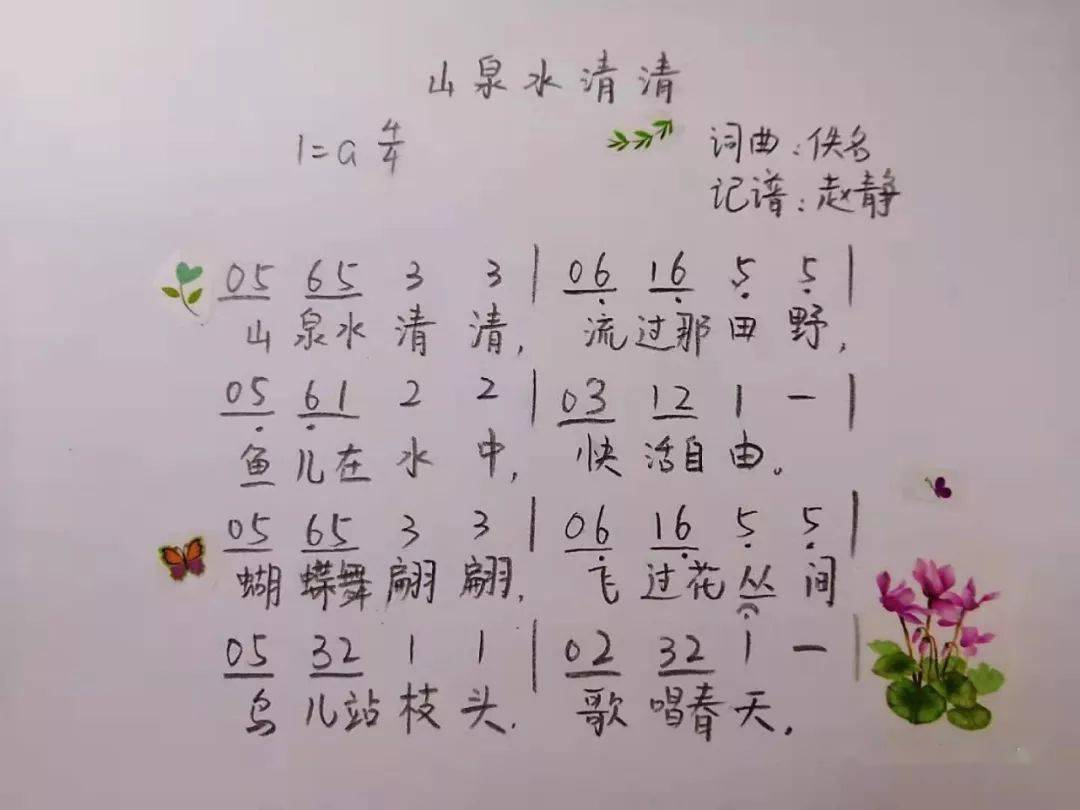 山泉水清清
1=a 4/4
词曲:佚名
记谱:赵静
05 65 3 3 | 06 16 5 5 |
山泉水清清, 流过那田野,
05 61 2 2 | 03 12 1 — |
鱼儿在水中, 快活自由。
05 65 3 3 | 06 16 5 5 |
蝴蝶舞翩翩, 飞过花丛间
05 32 1 1 | 02 32 1 — |
鸟儿站枝头. 歌唱春天.